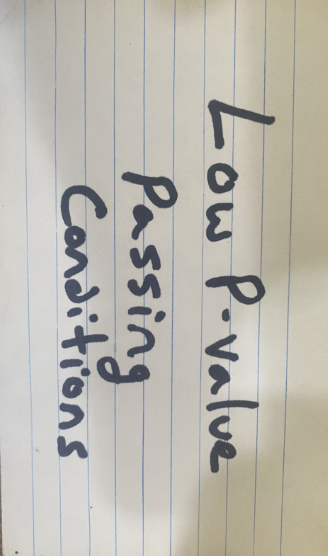 Low P-value
Passing
Conditions